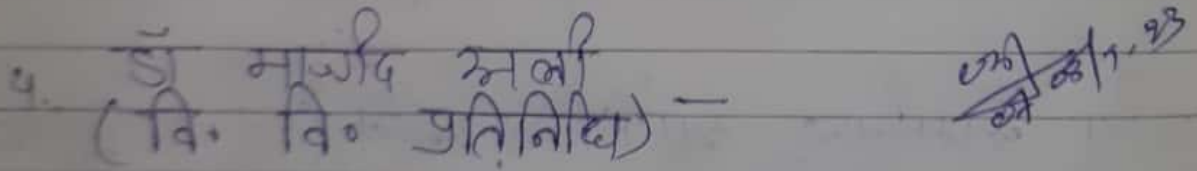 ५. डॉ माजीद अली
(वि. वि. प्रतिनिधि) —